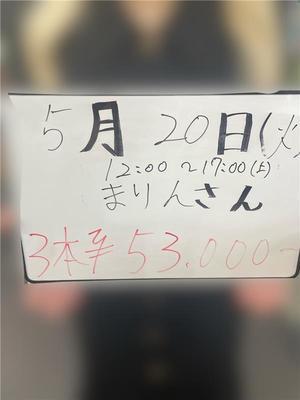 5月20日(火)
12:00〜17:00(上)
まりんさん
3本半53.000-